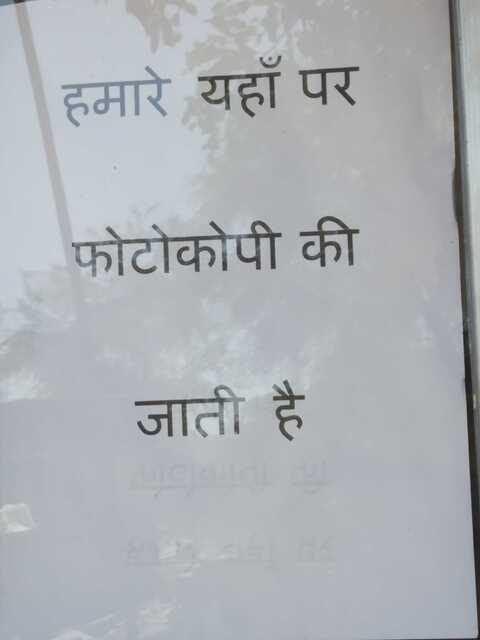 हमारे यहाँ पर
फोटोकोपी की
जाती है